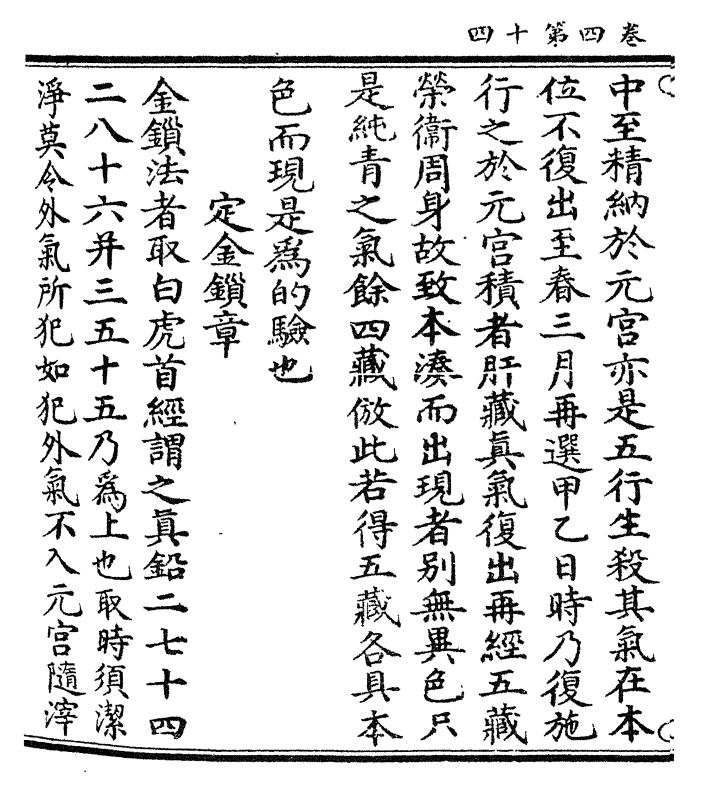 卷四第十四
中至精納於元宫亦是五行生殺其氣在本
位不復出至春三月再選甲乙日時乃復施
行之於元宫積者肝藏真氣復出再經五藏
榮衛周身故致本湊而出現者别無異色只
是純青之氣餘四藏倣此若得五藏各具本
色而現是為的驗也
定金鎖章
金鎖法者取白虎首經謂之真鉛二七十四
二八十六并三五十五乃為上也取時須潔
淨莫令外氣所犯如犯外氣不入元宫隨滓